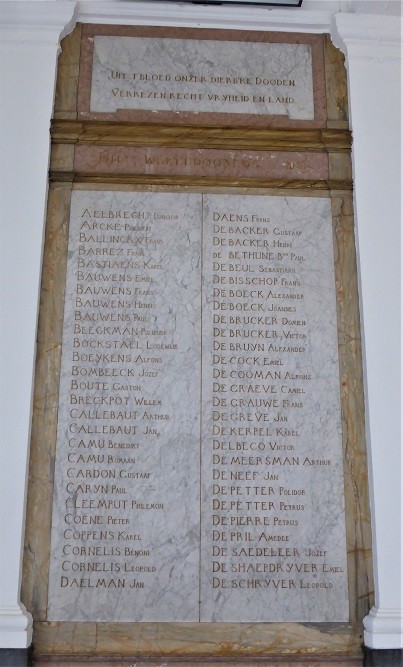 UIT 'T BLOED ONZER DIERB'RE DOODEN
VERREZEN RECHT VRYHEID EN LAND
AELBRECHT
ARCKE
BALLINCKX FRANS
BARREZ FRANS
BASTIAENS KAREL
BAUWENS EMIEL
BAUWENS FRANS
BAUWENS HENRI
BAUWENS PAUL
BEECKMAN POLIDOOR
BOCKSTAEL LODEWIJK
BOEYKENS ALFONS
BOMBEECK JOZEF
BOUTE GASTON
BRECKPOT WILLEM
CALLEBAUT ARTHUR
CALLEBAUT JAN
CAMU BENEDIKT
CAMU ROMAAN
CARDON GUSTAAF
CARYN PAUL
CLEEMPUT PHILEMON
COENE PIETER
COPPENS KAREL
CORNELIS BENONI
CORNELIS LEOPOLD
DAELMAN JAN
DAENS FRANS
DE BACKER GUSTAAF
DE BACKER HENRI
DE BETHUNE Bon PAUL
DE BEUL SEBASTIAAN
DE BISSCHOP FRANS
DE BOECK ALEXANDER
DE BOECK JOANNES
DE BRUCKER DORIEN
DE BRUCKER VICTOR
DE BRUYN ALEXANDER
DE COCK EMIEL
DE COOMAN ALFONS
DE GRAEVE CAMIEL
DE GRAUWE FRANS
DE GREVE JAN
DE KERPEL KAREL
DELBECQ VICTOR
DE MEERSMAN ARTHUR
DE NEEF JAN
DE PETTER POLIDOR
DE PETTER PETRUS
DE PIERRE PETRUS
DE PRIL AMEDEE
DE SAEDELEER JOZEF
DE SHAEPDRYVER EMIEL
DE SCHRYVER LEOPOLD